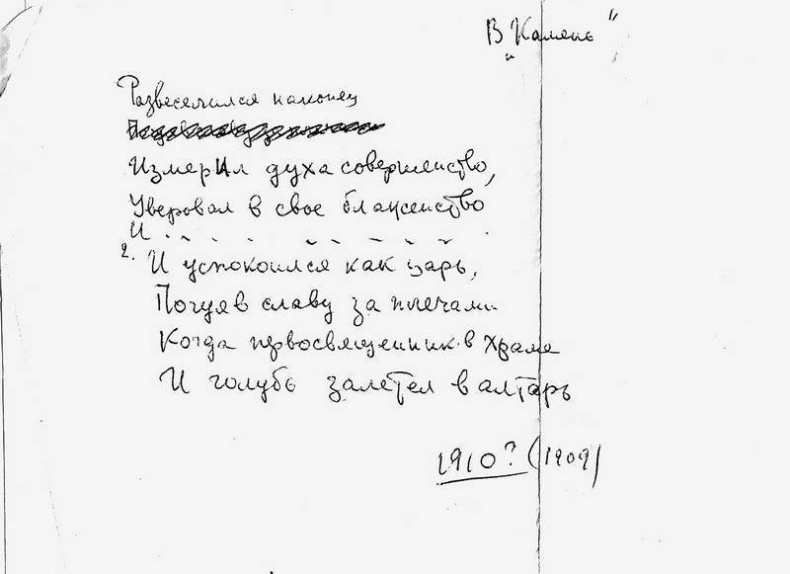 В "Камень"
Развеселился наконец
Измерил духа совершенство,
Уверовал в свое блаженство
И . . . . . . . .
2. И успокоился как царь,
Почуяв славу за плечами
Когда первосвященник в храме
И голубь залетел в алтарь
1910? (1909)